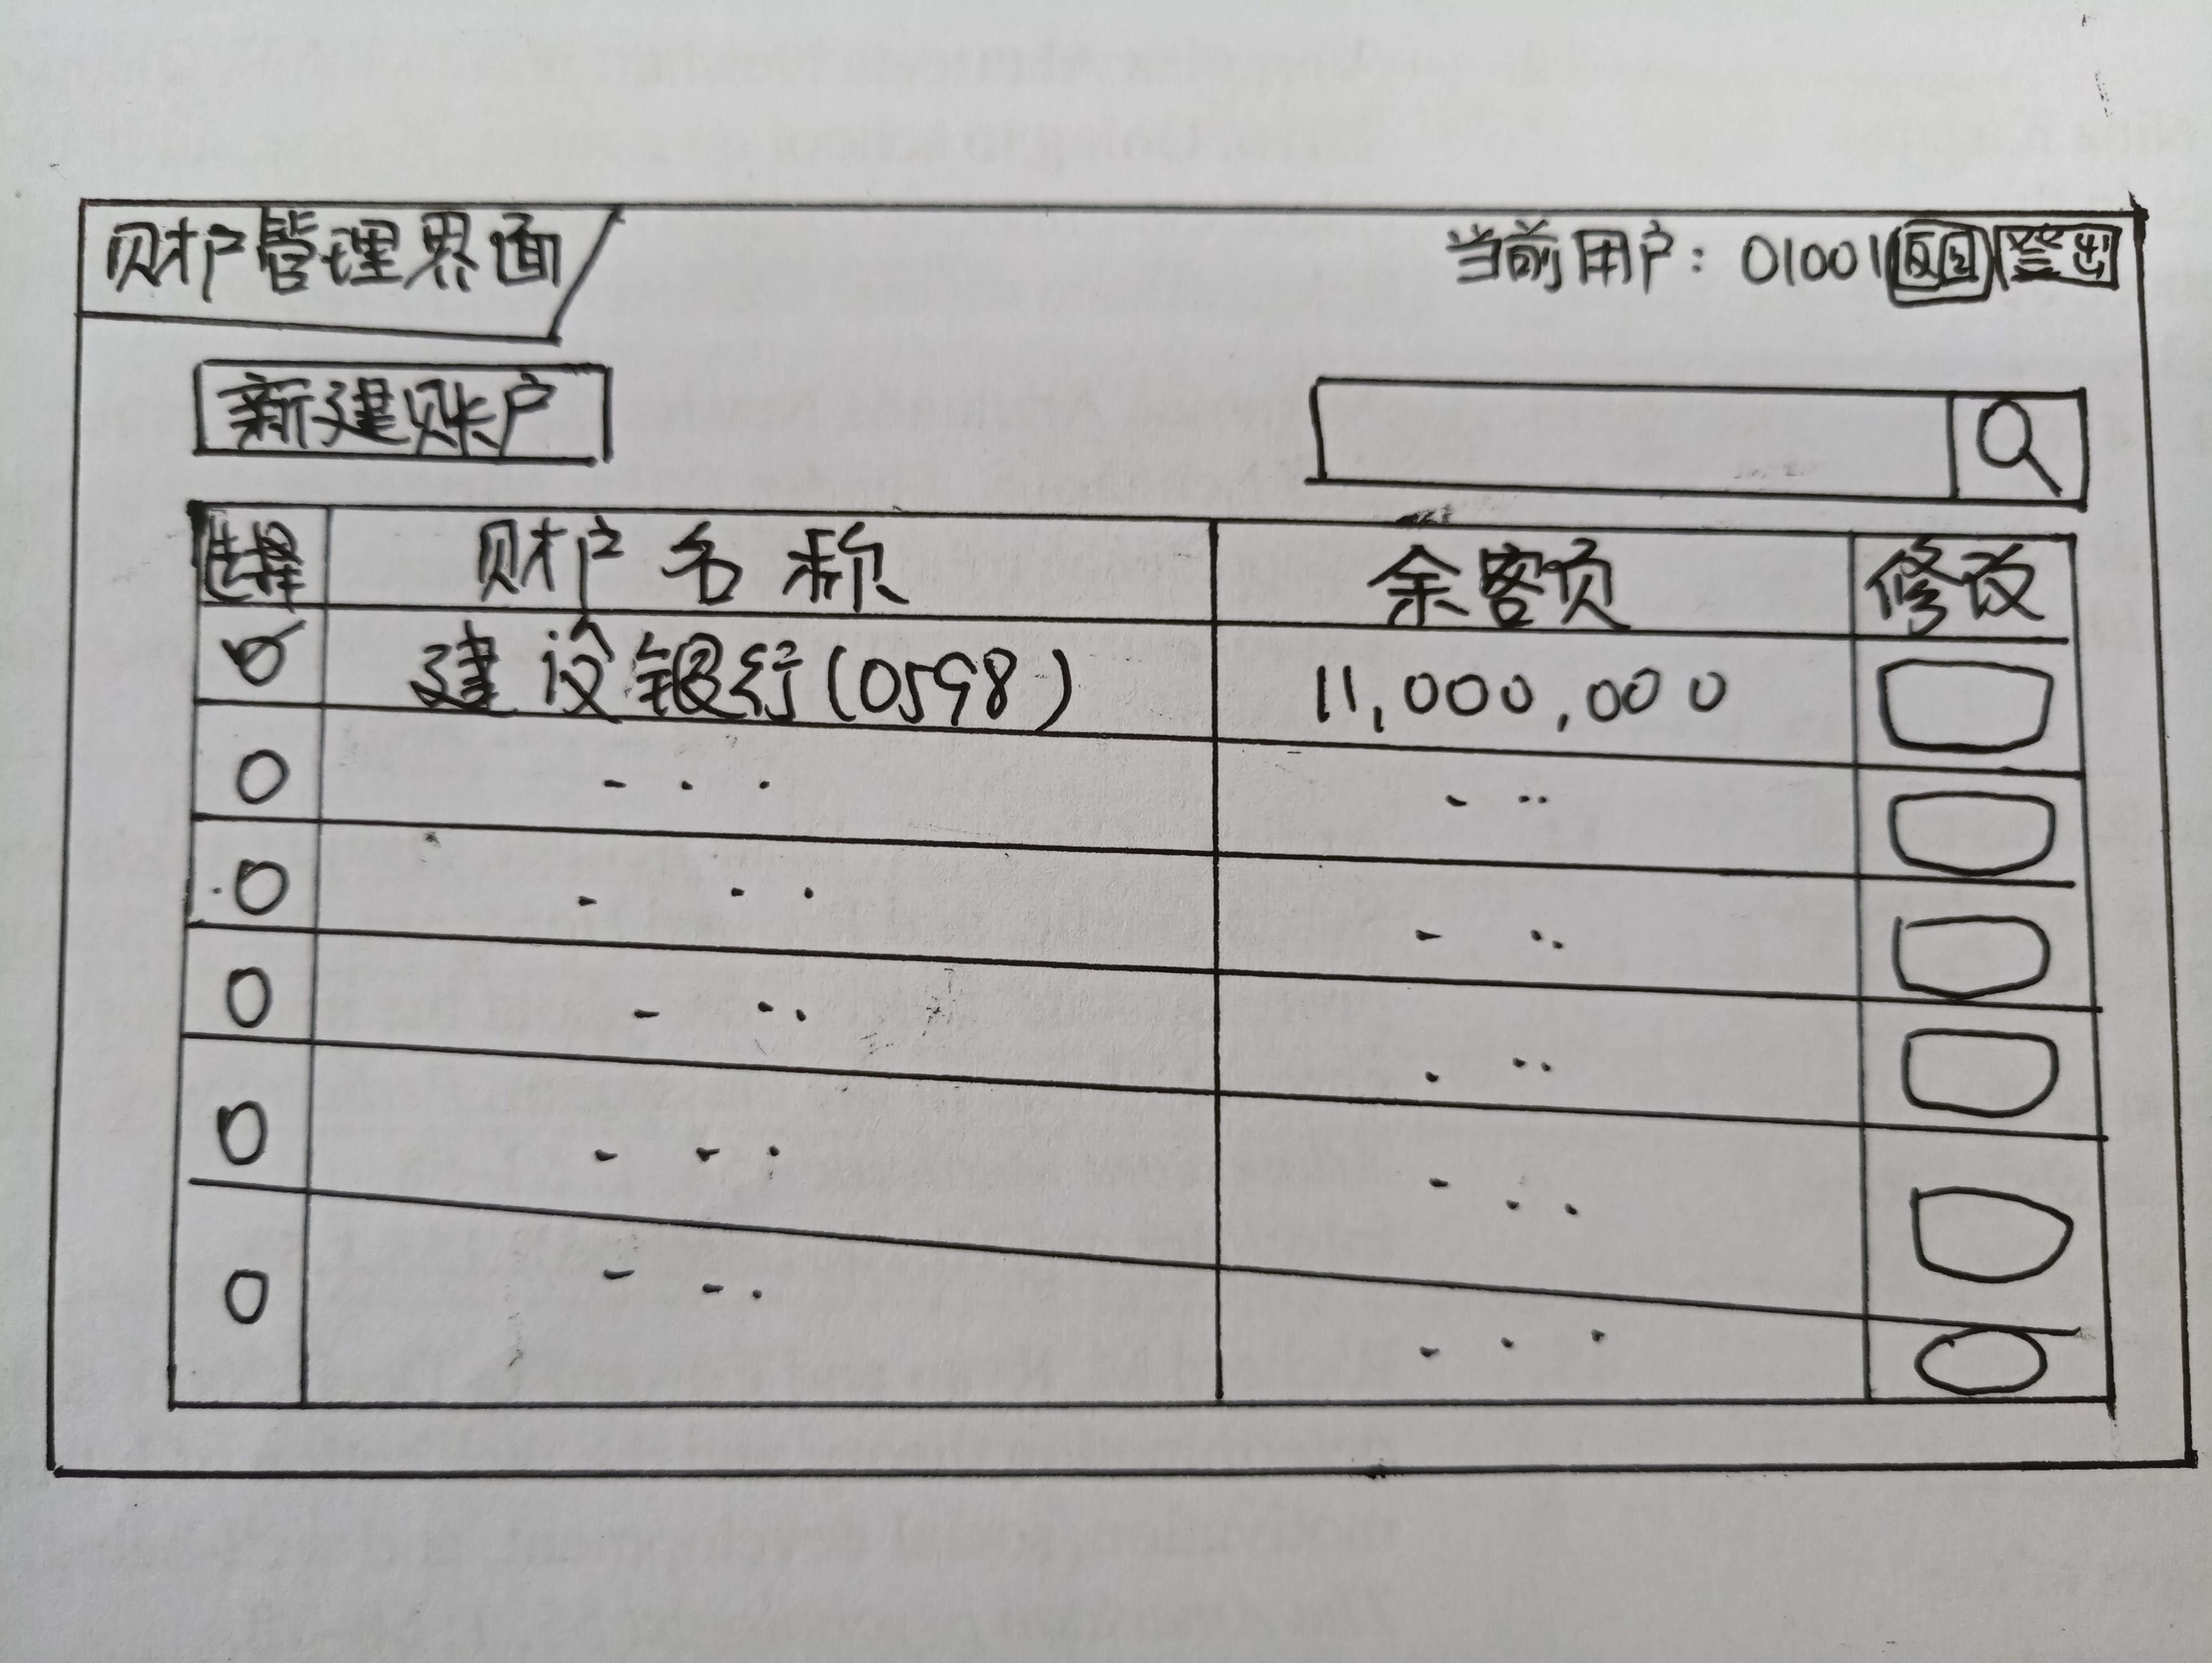 财户管理界面
当前用户：01001 返回 登出
新建账户
选择 财户名称 余额 修改
建设银行(0598) 11,000,000